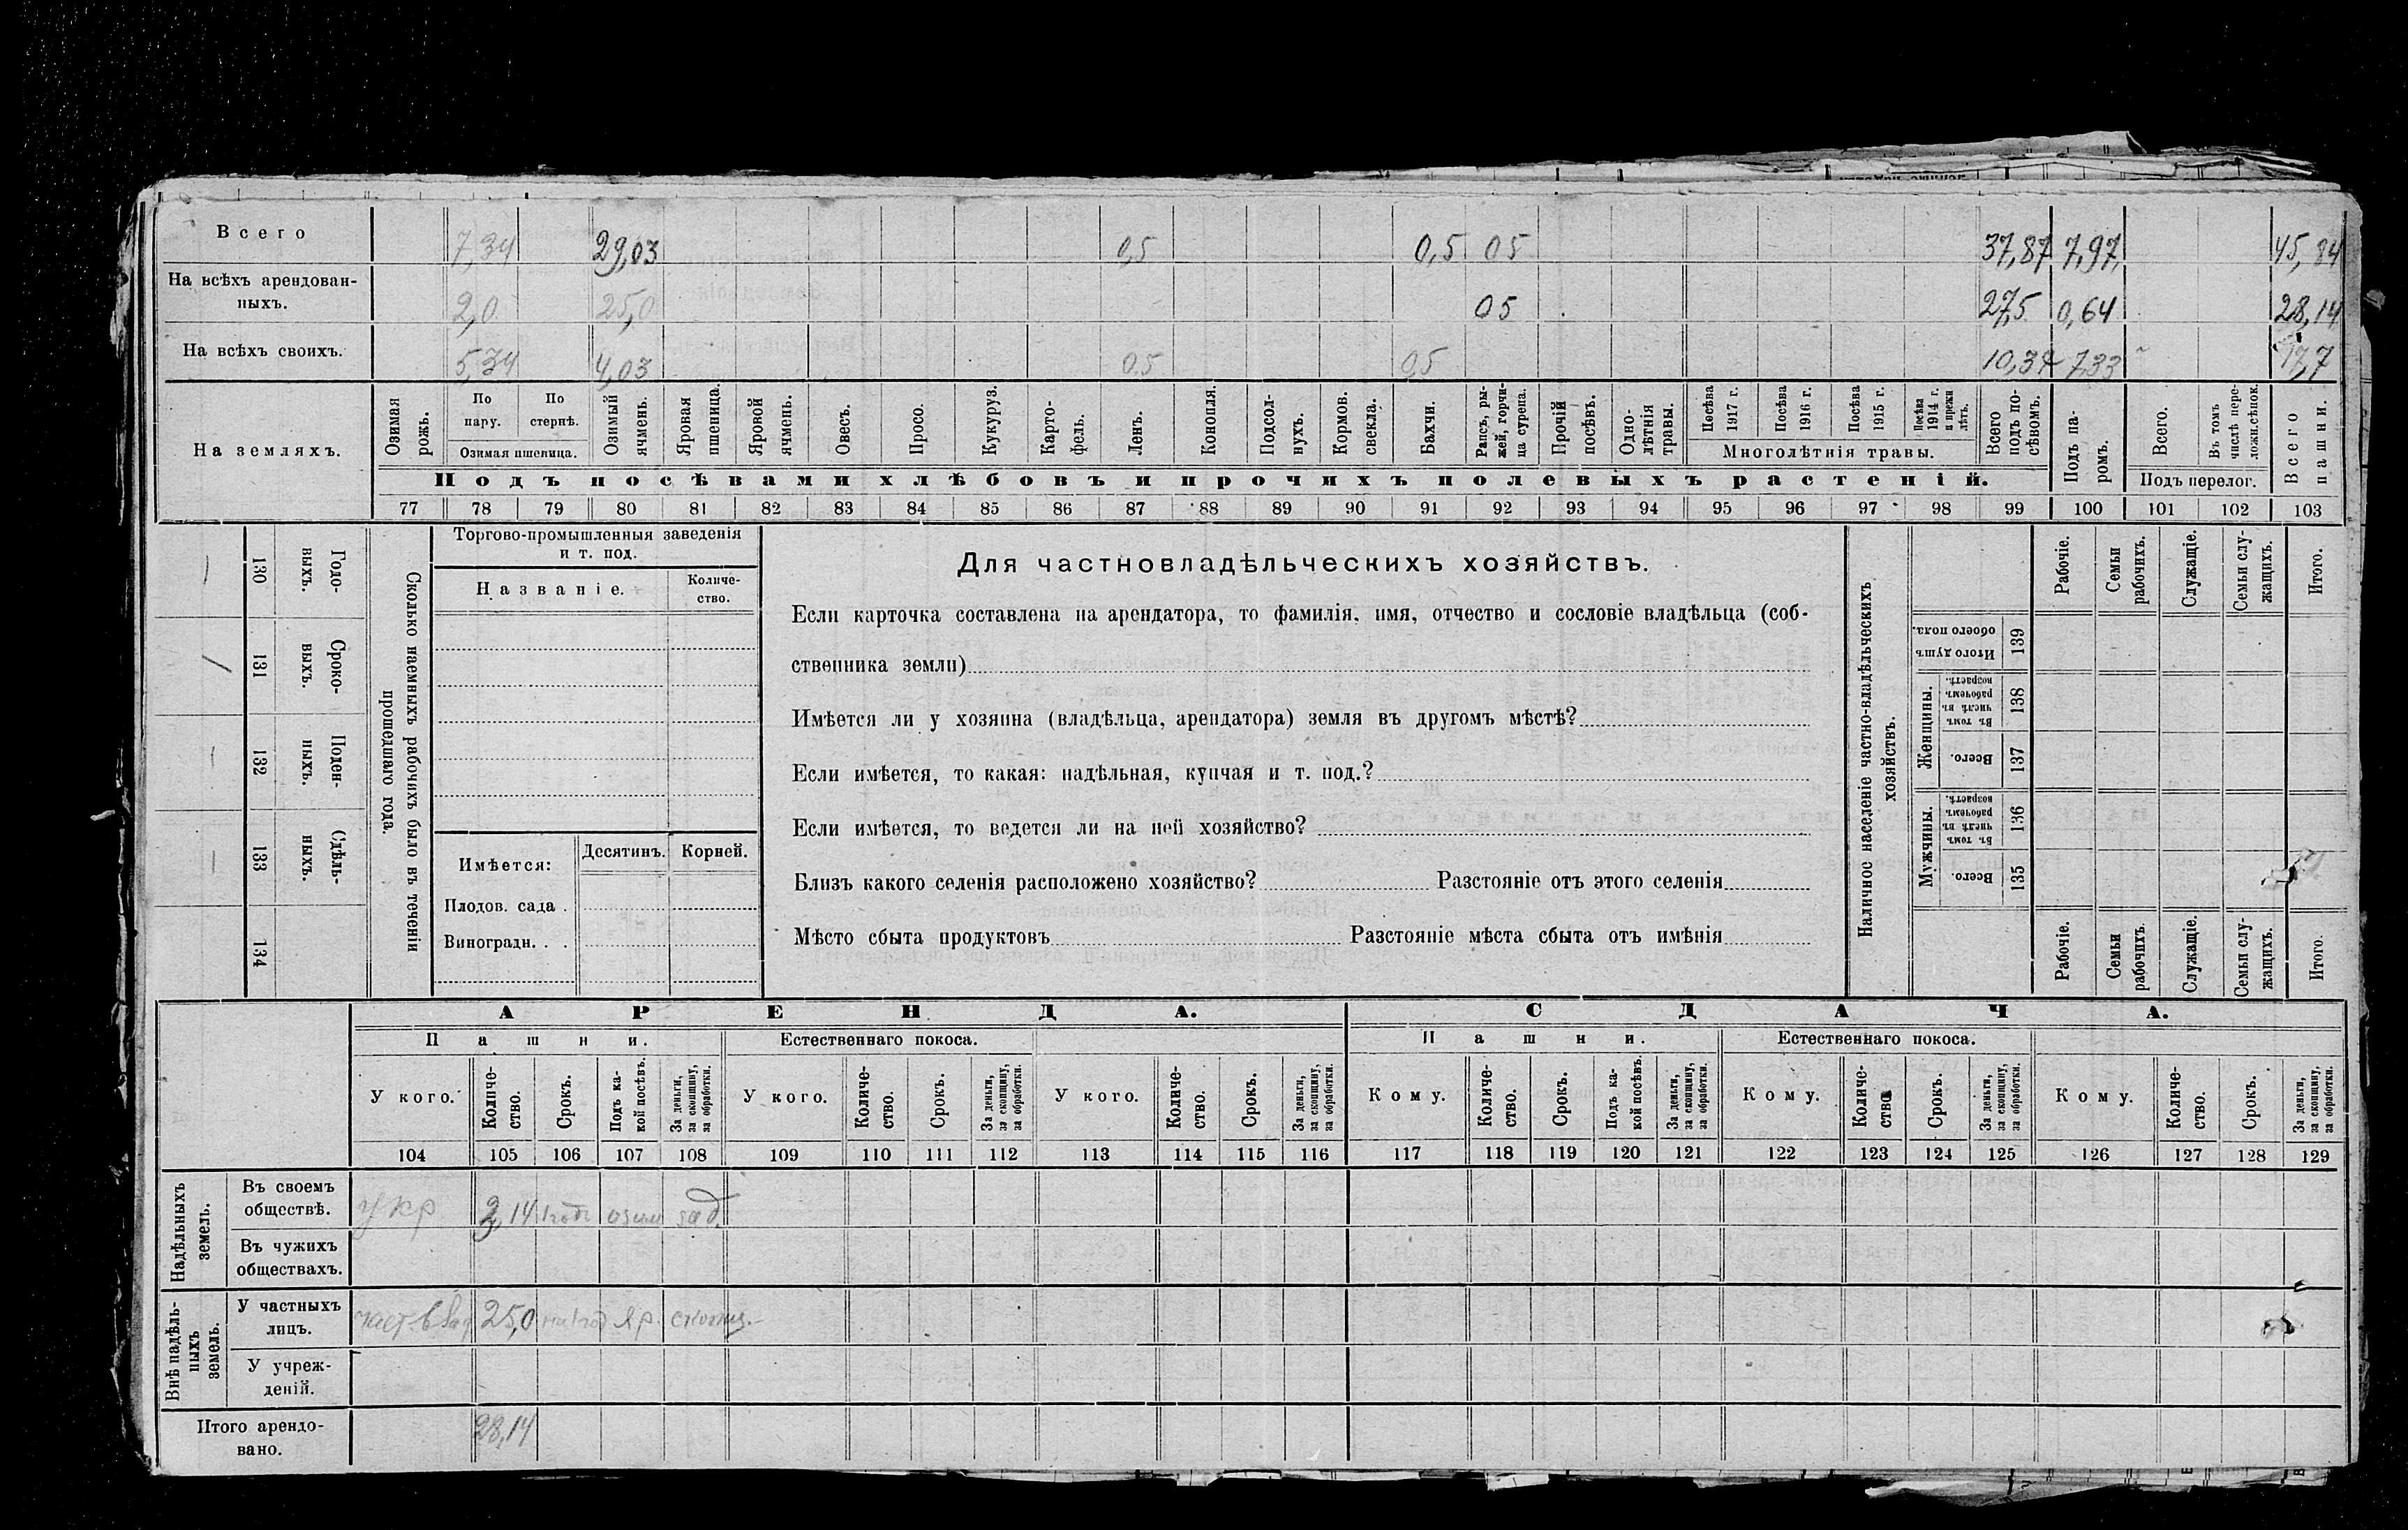 Всего 7,34 29,03 0,5 0,5 05 37,87 7,97 45,84
На всѣхъ арендован-
ныхъ. 2,0 25,0 05 27,5 0,64 28,14
На всѣхъ своихъ. 5,34 4,03 0,5 0,5 10,37 7,33 17,7
На земляхъ.
Озимая рожь.
По пару.
По стернѣ.
Озимая пшеница.
Озимый ячмень.
Яровая пшеница.
Яровой ячмень.
Овесъ.
Просо.
Кукуруз.
Карто-
фель.
Ленъ.
Конопля.
Подсол-
нухъ.
Кормов. свекла.
Бахчи.
Рапсъ, ры-
жей, горчи-
ца сурепа.
Прочій посѣвъ.
Одно-
лѣтнія травы.
Посѣва 1917 г.
Посѣва 1916 г.
Посѣва 1915 г.
Посѣва 1914 г. и прежн лѣтъ.
Многолѣтнія травы.
Всего подъ по-
сѣвомъ.
Подъ па-
ромъ.
Всего.
Въ томъ числѣ пере-
ложн.сѣнок.
Подъ перелог.
Всего пашни.
Подъ посѣвами хлѣбовъ и прочихъ полевыхъ растеній.
77 78 79 80 81 82 83 84 85 86 87 88 89 90 91 92 93 94 95 96 97 98 99 100 101 102 103
Годо-
выхъ. 130
Сроко-
выхъ. 131
Поден-
ныхъ. 132
Сдѣль-
ныхъ. 133
134
Сколько наемныхъ рабочихъ было въ теченіи
прошедшаго года.
Торгово-промышленныя заведенія
и т. под.
Названіе.
Количе-
ство.
Имѣется: Десятинъ. Корней.
Плодов. сада .
Виноградн. . .
Для частновладѣльческихъ хозяйствъ.
Если карточка составлена на арендатора, то фамилія, имя, отчество и сословіе владѣльца (соб-
ственника земли)
Имѣется ли у хозяина (владѣльца, арендатора) земля въ другомъ мѣстѣ?
Если имѣется, то какая: надѣльная, купчая и т. под.?
Если имѣется, то ведется ли на ней хозяйство?
Близъ какого селенія расположено хозяйство? Разстояніе отъ этого селенія
Мѣсто сбыта продуктовъ Разстояніе мѣста сбыта отъ имѣнія
Наличное населеніе частно-владѣльческихъ
хозяйствъ.
Рабочіе.
Семьи рабочихъ.
Служащіе.
Семьи слу-
жащихъ.
Итого.
Итого душъ обоего пола. 139
Женщины.
Въ томъ числѣ въ рабочемъ возрастѣ. 138
Всего. 137
Мужчины.
Въ томъ числѣ въ рабочемъ возрастѣ. 136
Всего. 135
Рабочіе.
Семьи рабочихъ.
Служащіе.
Семьи слу-
жащихъ.
Итого.
АРЕНДА. СДАЧА.
Пашни. Естественнаго покоса. Пашни. Естественнаго покоса.
У кого. Количе-
ство. Срокъ. Подъ ка-
кой посѣвъ. За деньги, за скопщину, за обработки.
У кого. Количе-
ство. Срокъ. За деньги, за скопщину, за обработки.
У кого. Количе-
ство. Срокъ. За деньги, за скопщину, за обработки.
Кому. Количе-
ство. Срокъ. Подъ ка-
кой посѣвъ. За деньги, за скопщину, за обработки.
Кому. Количе-
ство. Срокъ. За деньги, за скопщину, за обработки.
Кому. Количе-
ство. Срокъ. За деньги, за скопщину, за обработки.
104 105 106 107 108 109 110 111 112 113 114 115 116 117 118 119 120 121 122 123 124 125 126 127 128 129
Надѣльныхъ
земель.
Въ своемъ
обществѣ. у кр 3,14 озим
Въ чужихъ
обществахъ.
Внѣ надѣль-
ныхъ
земель.
У частныхъ
лицъ. 25,0 яр. скопщ.
У учреж-
деній.
Итого арендо-
вано. 28,14